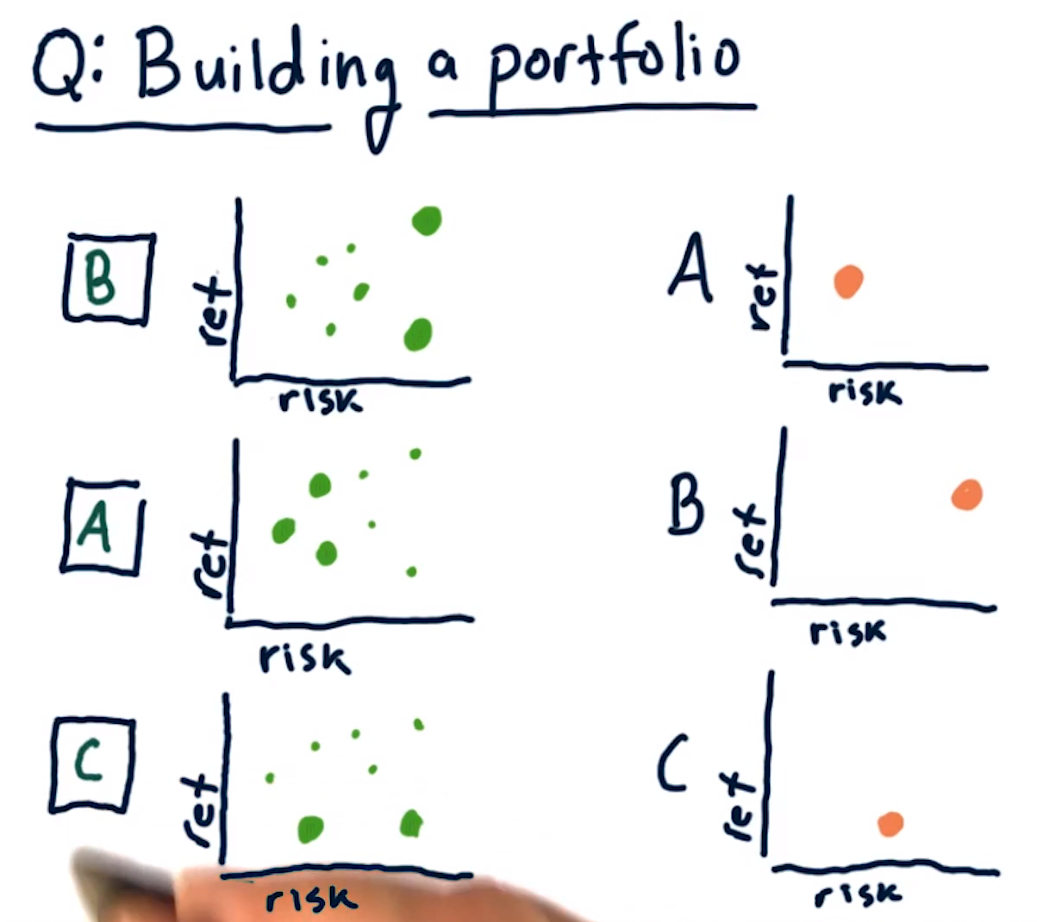 Q: Building a portfolio
B
ret
risk
A
ret
risk
A
ret
risk
B
ret
risk
C
ret
risk
C
ret
risk